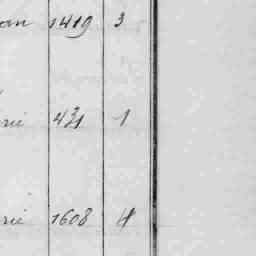 an 1419 3
rie 431 1
rie 1608 4